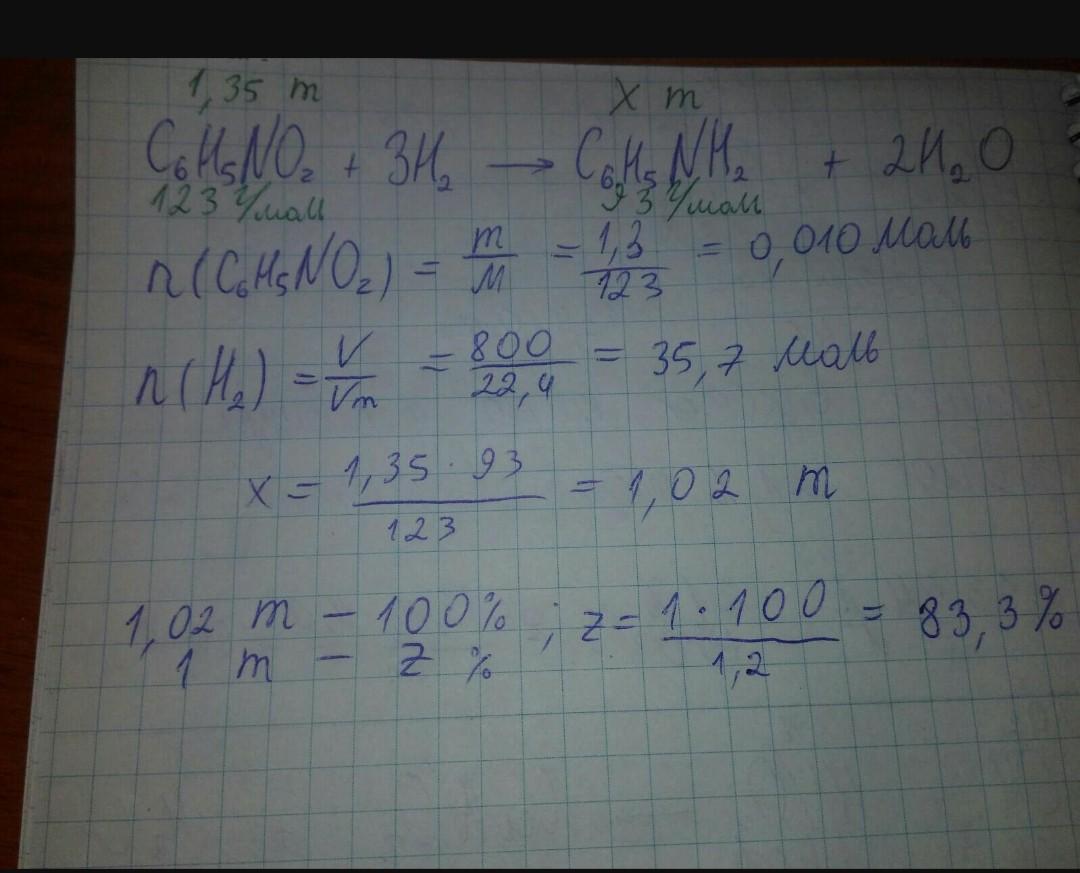 1,35 т х т
C₆H₅NO₂ + 3H₂ → C₆H₅NH₂ + 2H₂O
123 г/моль 93 г/моль
n(C₆H₅NO₂) = m/M = 1,3/123 = 0,010 моль
n(H₂) = V/Vm = 800/22,4 = 35,7 моль
x = 1,35 · 93/123 = 1,02 т
1,02 т – 100% ; z = 1 · 100/1,2 = 83,3%
1 т – z %